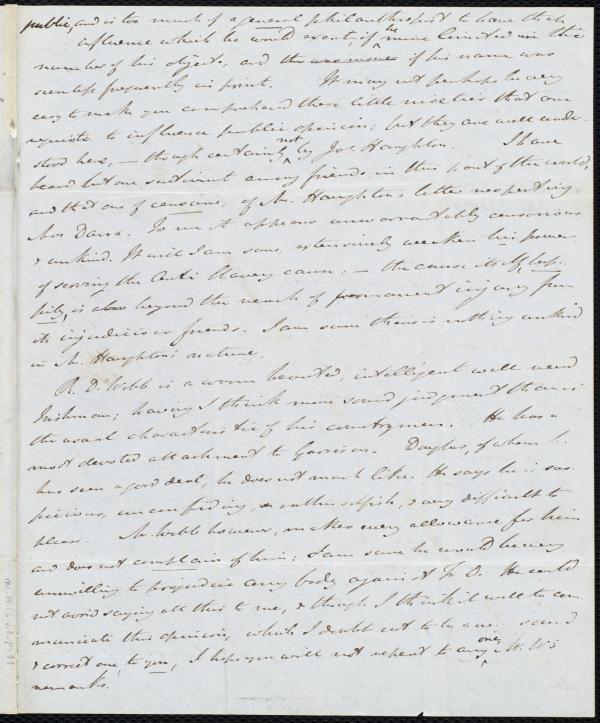 public, and is too much of a general philanthropist to have that
influence which he would exert, if he were limited in the
number of his objects, and if his name was
seen less frequently in print. It may not perhaps be very
easy to make you comprehend these little niceties that are
requisite to influence public opinion; but they are well under-
stood here, — though certainly not by Jas Haughton. I have
heard but one sentiment among friends in this part of the world,
and that one of censure, of Mr. Haughton's letter respecting
Mrs Dana. To me it appears unwarrantably censorious
& unkind. It will I am sure, extensively weaken his power
of serving the Anti Slavery cause: — the cause itself, hap-
pily, is beyond the reach of permanent injury from
its injudicious friends. I am sure there is nothing unkind
in Mr. Haughton's nature.
R. D. Webb is a warm hearted, intelligent well read
Irishman; having I think more sound judgment than is
the usual characteristic of his countrymen. He has a
most devoted attachment to Garrison. Douglas, of whom he
has seen a good deal, he does not much like. He says he is sus-
picious, unconfiding, rather selfish, & very difficult to
please. Mr. Webb however, makes every allowance for him
and does not complain of him; I am sure he would be very
unwilling to prejudice any body against F. D. He could
not avoid saying all this to me, & though I think it well to com-
municate this opinion, which I doubt not to be a sound
& correct one, to you, I hope you will not repeat to any one Mr. W's
remarks.